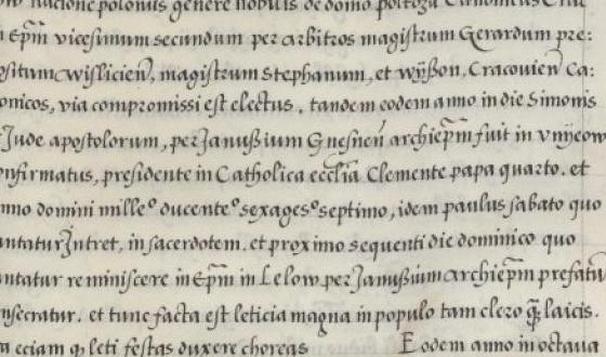 nacione polonus genere nobilis de domo poltoza Canonicus Cra
n Ep̃m vicesimum secundum per arbitros magistrum Gerardum pre:
ositum wislicieñ, magistrum Stephanum, et wÿßon, Cracovieñ Ca:
onicos, via compromissi est electus. tandem eodem anno in die Simonis
Jude apostolorum, per Janußium Gnesneñ archiep̃m fuit in vnyeow
onfirmatus, presidente in Catholica eccl̃ia Clemente papa quarto. et
nno domini milleº ducenteº sexagesº septimo, idem paulus sabato quo
antatur Intret, in sacerdotem. et proximo sequenti die dominico quo
ntatur reminiscere in Ep̃m in Lelow per Janußium archiep̃m prefatũ
nsecratur. et tunc facta est leticia magna in populo tam clero q̃ laicis.
a eciam q leti festas duxere choreas Eodem anno in octaua